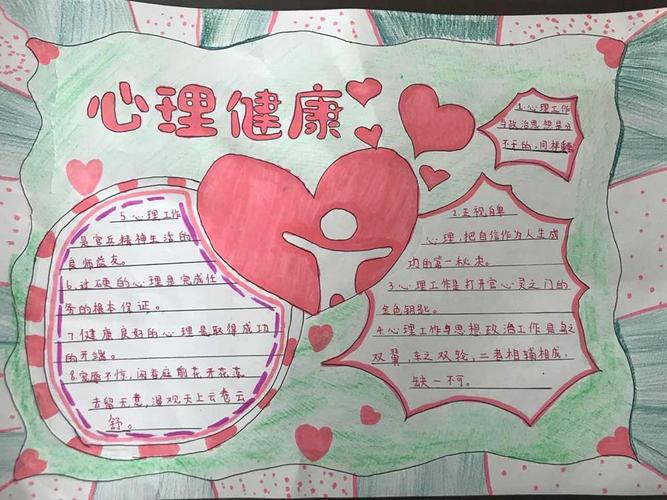 心理健康
1.心理工作
与政治思想是分
不开的,同样
2.正视自卑
心理,把自信作为人生成
功的第一秘决。
3.心理工作是打开官心灵之门的
金色钥匙。
4.心理工作与思想政治工作是鸟之
双翼,车之双轮,二者相辅相成,
缺一不可。
5.心理工作
是官兵精神生活的
良师益友。
6.过硬的心理是完成任
务的根本保证。
7.健康良好的心理是取得成功
的开端。
8.宠辱不惊,闲看庭前花开花落
去留无意,漫观天上云卷云
舒。